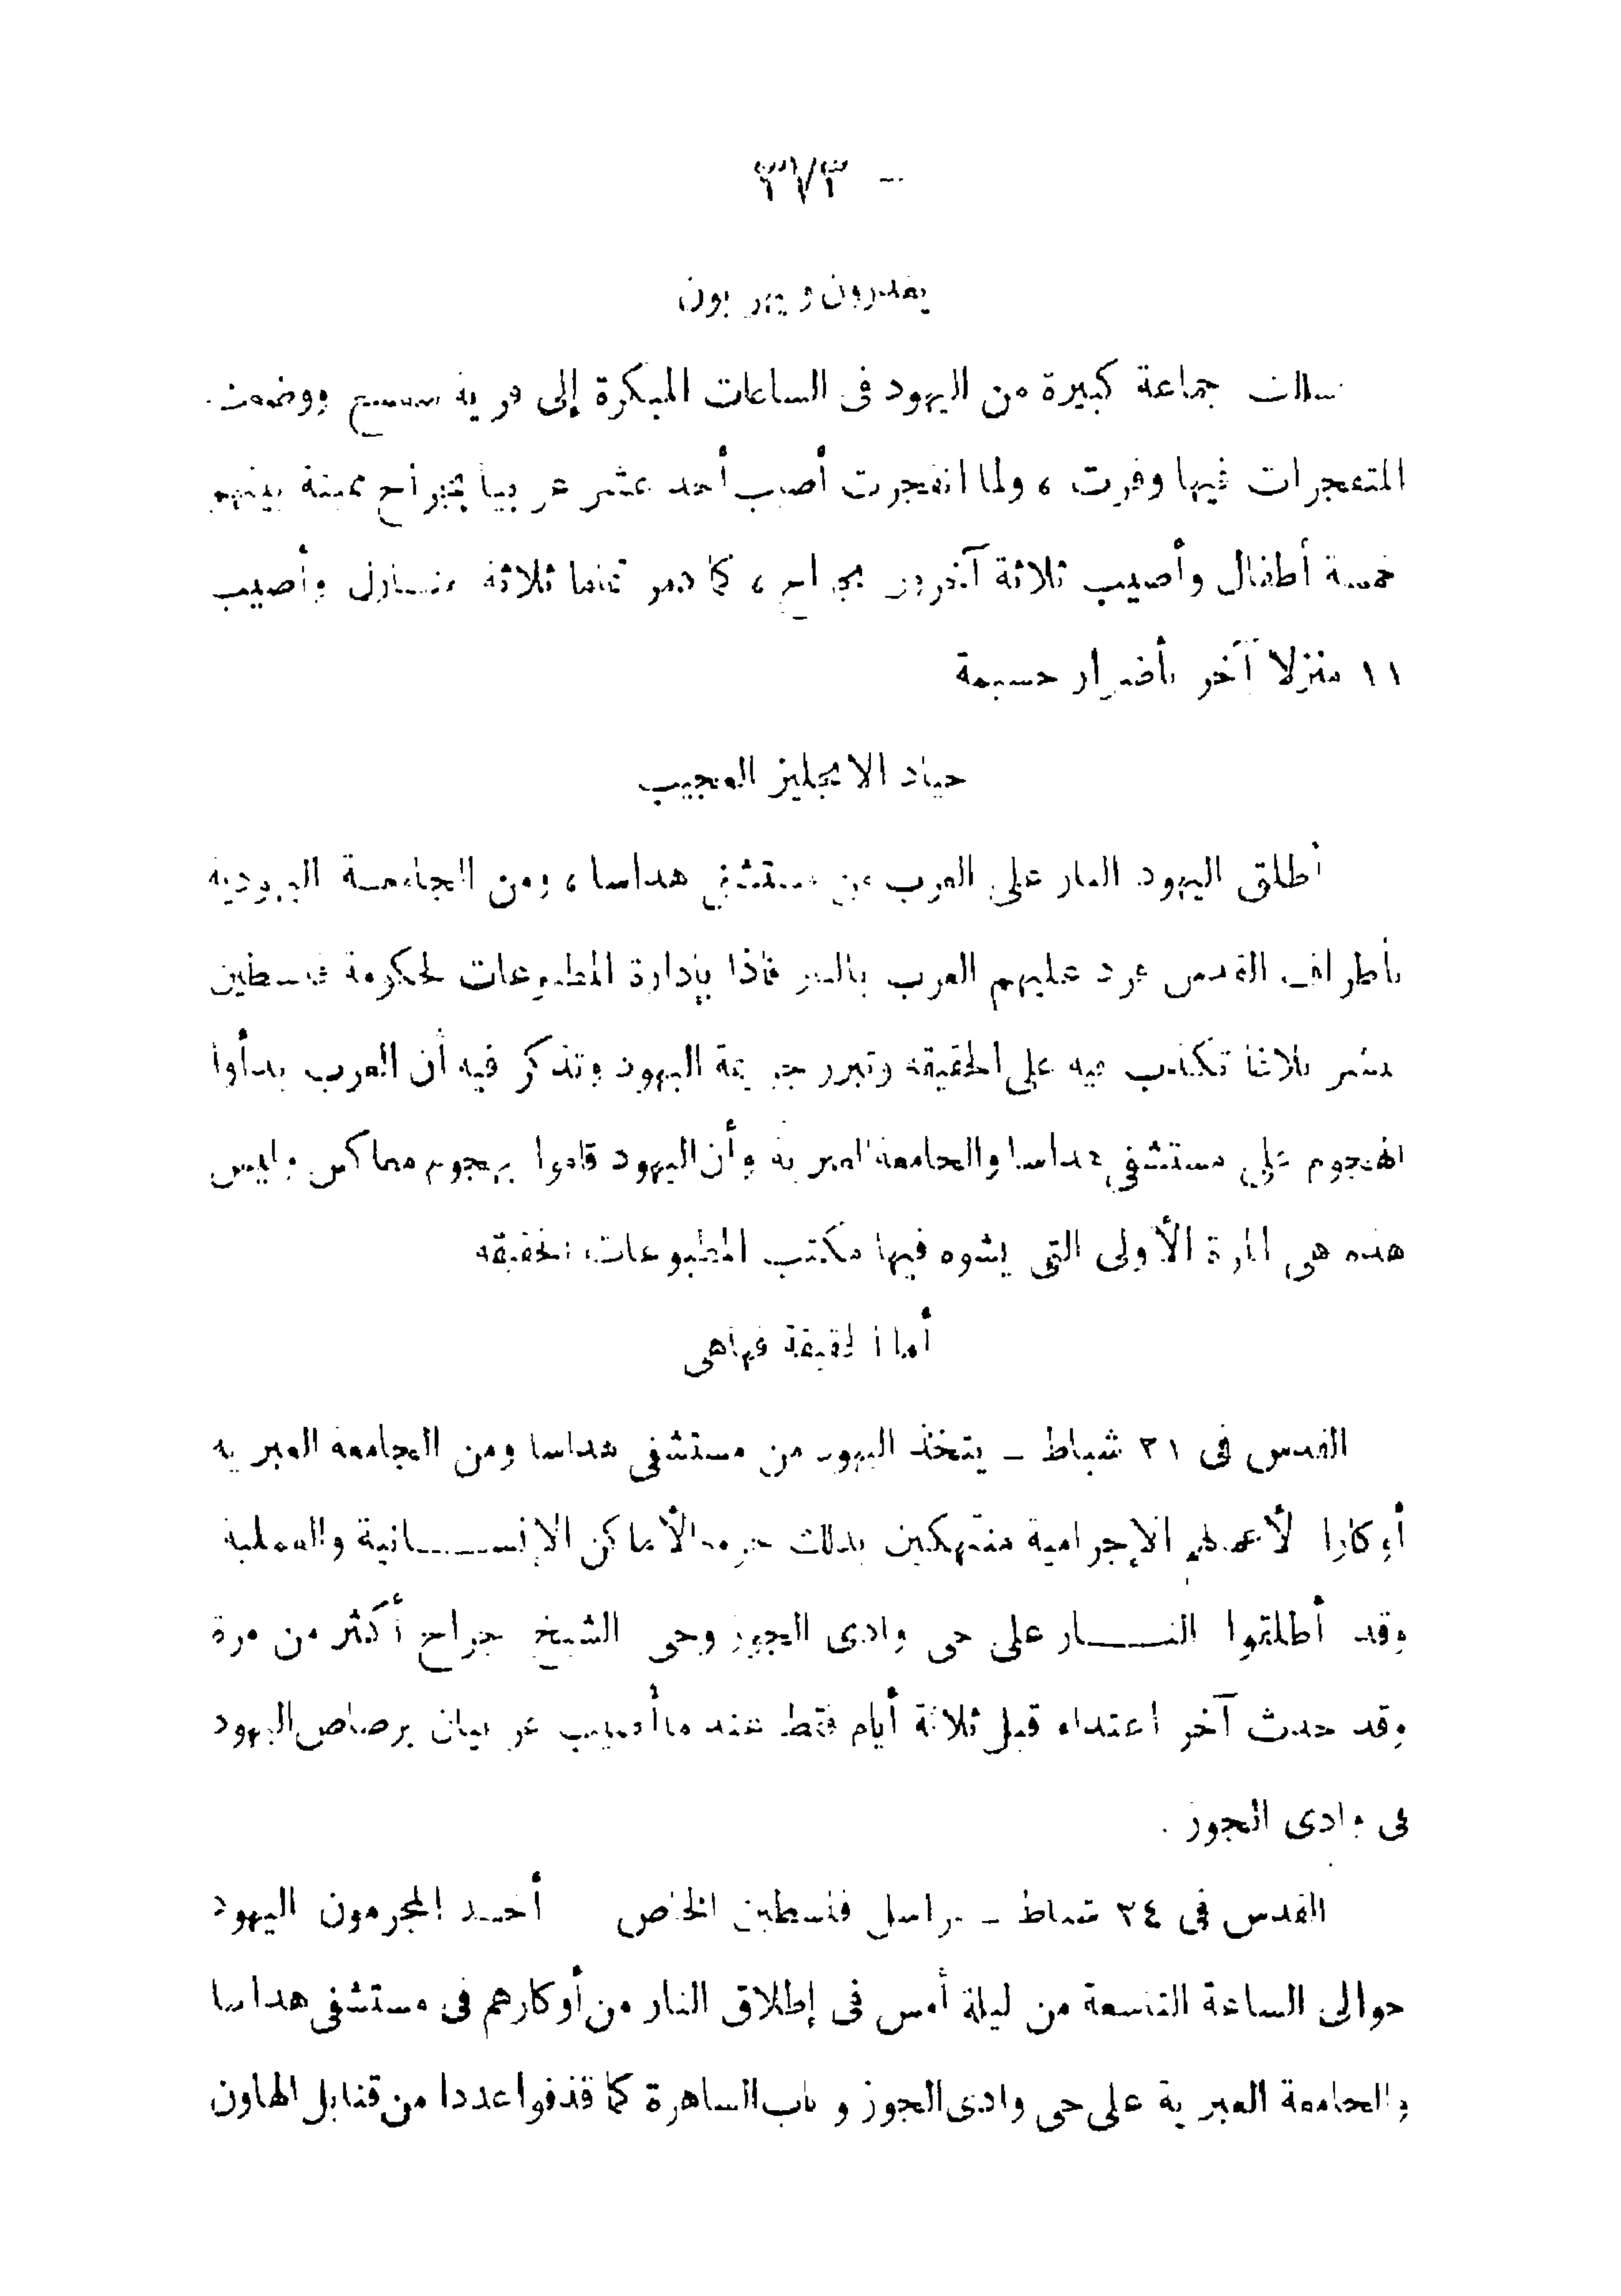 ٣٧٣ -
يغدرون ويهربون
تسللت جماعة كبيرة من اليهود فى الساعات المبكرة إلى قرية سعسع ووضعت
المتفجرات فيها وفرت ، ولما انفجرت أصيب أحد عشر عربيا بجراح مميتة بينهم
خمسة أطفال وأصيب ثلاثة آخرون بجراح ، كما دمر تماما ثلاثة منازل وأصيب
١١ منزلا آخر بأضرار جسيمة
حياد الانجليز العجيب
أطلق اليهود النار على العرب من مستشفى هداسا ، ومن الجامعة اليهودية
بأطراف القدس فرد عليهم العرب بالمثل فاذا بإدارة المطبوعات لحكومة فلسطين
تنشر بلاغا تكذب فيه على الحقيقة وتبرر جريمة اليهود وتذكر فيه أن العرب بدأوا
الهجوم على مستشفى هداسا والجامعة العبرية وأن اليهود قاموا بهجوم معاكس وليس
هذه هى المرة الأولى التى يشوه فيها مكتب المطبوعات الحقيقة
أما الحقيقة فهاهى
القدس فى ٢١ شباط ـ يتخذ اليهود من مستشفى هداسا ومن الجامعة العبرية
أوكارا لأعمالهم الإجرامية منتهكين بذلك حرمة الأماكن الإنسانية والعملية
وقد أطلقوا النار على حى وادى الجوز وحى الشيخ جراح أكثر من مرة
وقد حدث آخر اعتداء قبل ثلاثة أيام فقط عند ما أصيب عربيان برصاص اليهود
فى وادى الجوز .
القدس فى ٢٤ شباط ـ مراسل فلسطين الخاص أخذ المجرمون اليهود
حوالى الساعة التاسعة من ليلة أمس فى إطلاق النار من أوكارهم فى مستشفى هداسا
والجامعة العبرية على حى وادى الجوز و باب الساهرة كما قذفوا عددا من قنابل الهاون